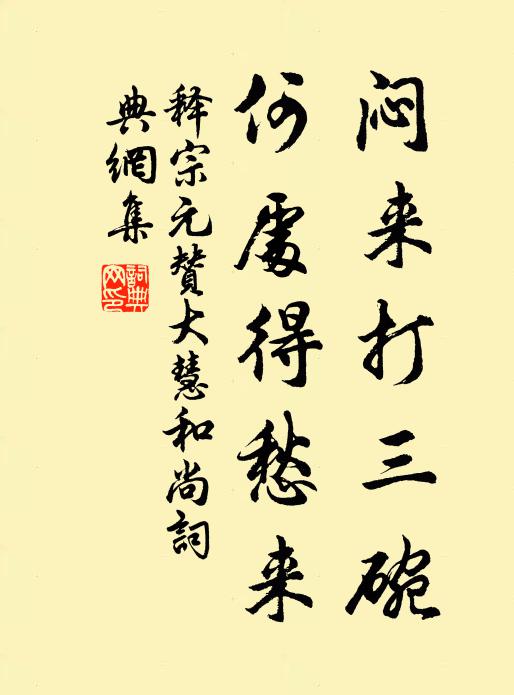 闷来打三碗
何處得愁来
释宗元赞大慧和尚詞
典網集
詞典
网印